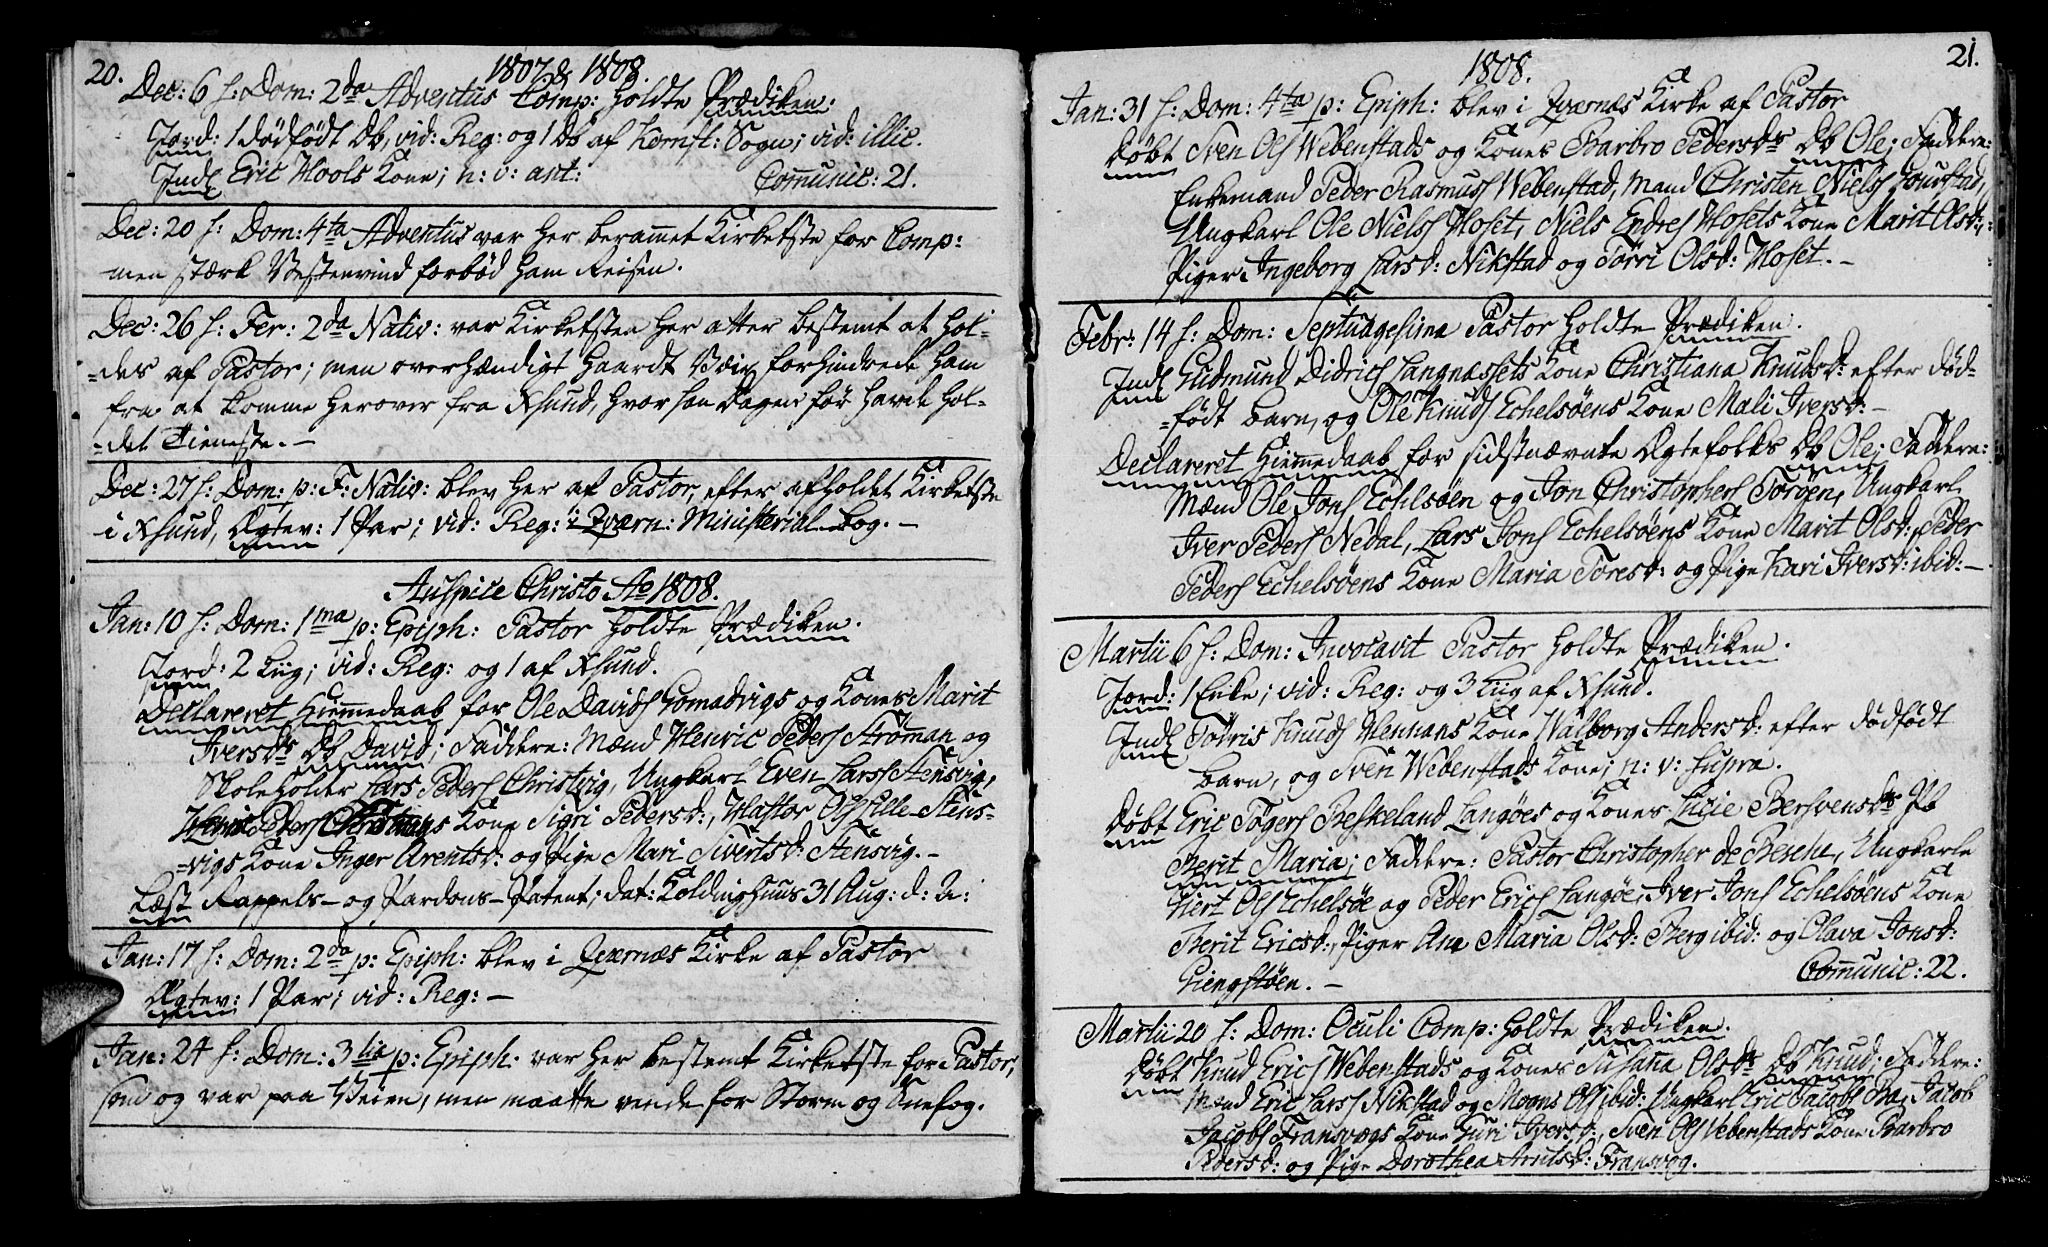 20.
1807 & 1808.
Dec: 6 f: Dom: 2da Adventus Comp: holdte Prædiken.
Jord: 1 dødfödt Db, vid: Reg: og 1 Db af Kornst: Sogn; vid: illic.
Indl Eric Hools Kone; n: v: ant:
Communic: 21.
Dec: 20 f: Dom: 4ta Adventus var her berammet Kirketste for Comp:
men stærk Vestenvind forböd ham Reisen.
Dec: 26 f: Fer: 2da Nativ: var Kirketsten her atter bestemt at hol-
-des af Pastor; men overhændigt haardt Veir forhindrede ham
fra at komme herover fra Xsund, hvor han Dagen för havde hol-
-det Tieneste. -
Dec: 27 f: Dom: p: F: Nativ: blev her af Pastor, efter afholdet Kirketste
i Xsund, Ægtev: 1 Par; vid: Reg: i Qværn: Ministerial-Bog. -
Auspice Christo Ao 1808.
Jan: 10 f: Dom: 1ma p: Epiph: Pastor holdte Prædiken.
Jord: 2 Liig; vid: Reg: og 1 af Xsund.
Declareret Hiemmedaab for Ole Davids Gomadvigs og Kones Marit
Iversds Db David; Faddere: Mænd Henric Peders Ströman og
Skoleholder Lars Peders Christvig, Ungkarl Even Larss Stensvig,
Peders Kone Sigri Pedersd:, Hastor Ols Lille-Stens-
-vigs Kone Inger Arentsd: og Pige Mari Sivertsd: Stensvig. -
Læst Rappels- og Pardons-Patent; dat: Koldinghuus 31 Aug: d: A:
Jan: 17 f: Dom: 2da p: Epiph: blev i Qværnæs Kirke af Pastor
Ægtev: 1 Par; vid: Reg: -
Jan: 24 f: Dom: 3tia p: Epiph: var her bestemt Kirketste for Pastor,
som og var paa Veien, men maatte vende for Storm og Snefog.
1808.
21.
Jan: 31 f: Dom: 4ta p: Epiph: blev i Qværnæs Kirke af Pastor
Döbt Sven Ols Webenstads og Kones Barbro Pedersds Db Ole; Faddere:
Enkemand Peder Rasmuss Webenstad, Mand Christen Niels Gourstad,
Ungkarl Ole Nielss Hoset, Niels Endres Hosets Kone Marit Olsd:,
Piger Ingeborg Larsd: Nikstad og Törri Olsd: Hoset. -
Febr: 14 f: Dom: Septuagesima Pastor holdte Prædiken.
Indl Gudmund Didrics Langnæssets Kone Christiana Knudsd: efter död-
-födt Barn, og Ole Knuds Echelsöens Kone Mali Iversd: -
Declareret Hiemmedaab for sidstnævnte Ægtefolks Db Ole; Faddere:
Mænd Ole Jons Echelsöen og Jon Christophers Toröen, Ungkarl
Iver Peders Nedal, Lars Jons Echelsöens Kone Marit Olsd:, Peder
Peders Echelsöens Kone Maria Toresd: og Pige Kari Iversd: ibid: -
Martii 6 f: Dom: Invocavit Pastor holdte Prædiken.
Jord: 1 Enke; vid: Reg: og 3 Liig af Xsund.
Indl Todris Knuds Hennans Kone Walborg Andersd: efter dödfödt
Barn, og Sven Webenstads Kone; n: v: supra.
Döbt Eric Tögers Beskeland Langöes og Kones Lucie Bersvensds Pb
Berit Maria; Faddere: Pastor Christopher de Besche, Ungkarle
Kert Ols Echelsöe og Peder Erics Langöe, Iver Jons Echelsöens Kone
Berit Ericsd:, Piger Ana Maria Olsd: Berg ibid: og Olava Jonsd:
Giengstöen. -
Communic: 22.
Martii 20 f: Dom: Oculi Comp: holdte Prædiken.
Döbt Knud Erics Webenstads og Kones Susana Olsds Db Knud; Faddere:
Mænd Eric Larss Nikstad og Moons Ols ibid: Ungkarl Eric Jacobs Bæ, Jacob
Jacobs Fransvogs Kone Guri Iversd:, Sven Ols Webenstads Kone Barbro
Pedersd: og Pige Dorothea Arntsd: Fransvog.